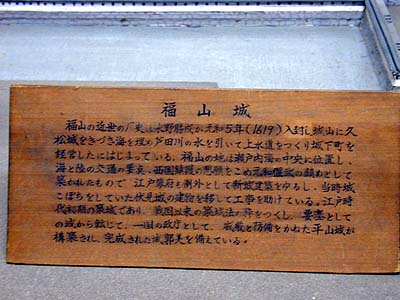 福山城
福山の近世の歴史は水野勝成が元和5年(1619)入封し城山に久
松城をきづき海を埋め芦田川の水を引いて上水道をつくり城下町を
経営したにはじまっている。福山の地は瀬戸内海の中央に位置し、
海と陸の交通の要衝、西国鎮護の思願をこめ元和偃武の鎮めとして
築かれたもので江戸幕府も例外として新城建築をゆるし、当時城
こぼちをしていた伏見城の建物を移して工事を助けている。江戸時
代初期の築城であり、戦国以来の築城法の粋をつくし、要塞として
の城から転じて、一国の政庁として、威厳と防備をかねた平山城が
構築され、完成された城郭美を備えている。